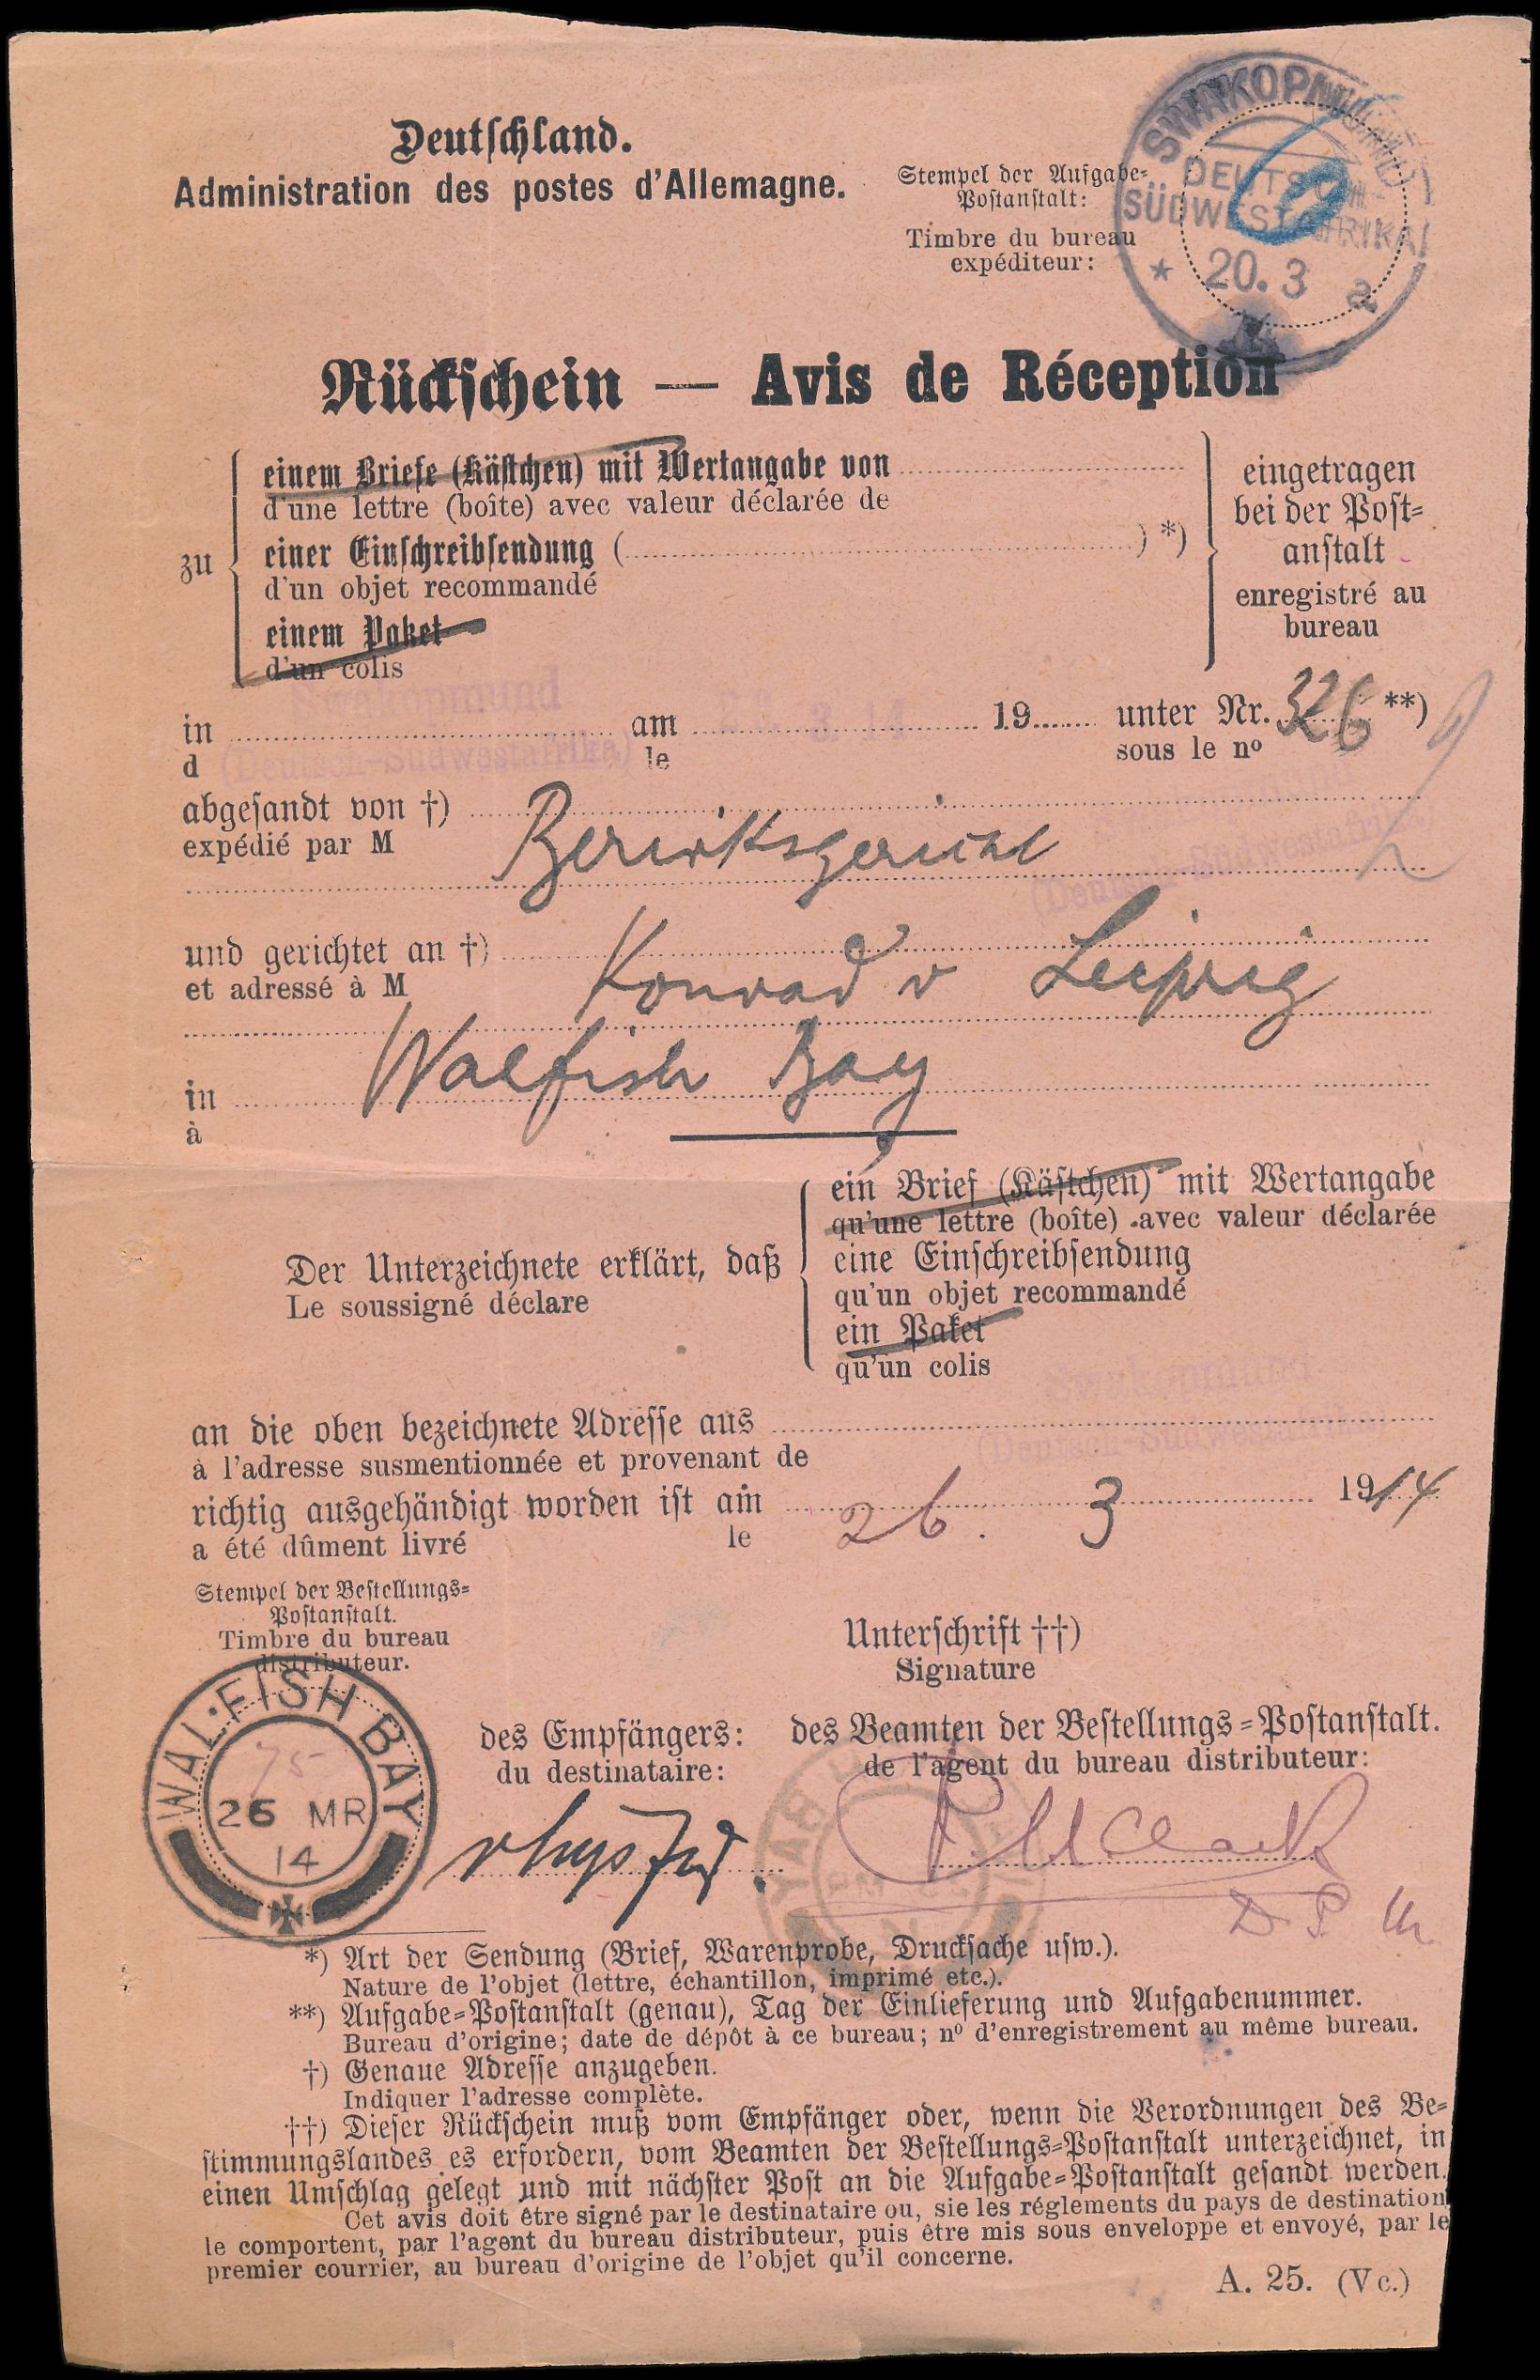 Deutschland.
Administration des postes d'Allemagne.
Stempel der Aufgabe-
Postanstalt:
Timbre du bureau
expéditeur:
SWAKOPMUND
DEUTSCH-
SÜDWESTAFRIKA
* 20. 3 a
14
Rückschein — Avis de Réception
zu
einem Briefe (Kästchen) mit Wertangabe von
d'une lettre (boîte) avec valeur déclarée de
einer Einschreibsendung ( ) *)
d'un objet recommandé
einem Paket
d'un colis
eingetragen
bei der Post-
anstalt
enregistré au
bureau
Swakopmund
in am 20. 3. 14 19 unter Nr. 326 **)
d (Deutsch-Südwestafrika) le sous le nº
abgesandt von †)
expédié par M Bezirksgericht
(Deutsch-Südwestafrika)
und gerichtet an †)
et adressé à M Konrad v Leipzig
in Walfish Bay
à
Der Unterzeichnete erklärt, daß
Le soussigné déclare
ein Brief (Kästchen) mit Wertangabe
qu'une lettre (boîte) avec valeur déclarée
eine Einschreibsendung
qu'un objet recommandé
ein Paket
qu'un colis
Swakopmund
an die oben bezeichnete Adresse aus
(Deutsch-Südwestafrika)
à l'adresse susmentionnée et provenant de
richtig ausgehändigt worden ist am 26. 3 1914
a été dûment livré le
Stempel der Bestellungs-
Postanstalt.
Timbre du bureau
distributeur.
WAL·FISH BAY
75
26 MR
14
Unterschrift ††)
Signature
des Empfängers:
du destinataire:
des Beamten der Bestellungs-Postanstalt.
de l'agent du bureau distributeur:
*) Art der Sendung (Brief, Warenprobe, Drucksache usw.).
Nature de l'objet (lettre, échantillon, imprimé etc.).
**) Aufgabe-Postanstalt (genau), Tag der Einlieferung und Aufgabenummer.
Bureau d'origine; date de dépôt à ce bureau; nº d'enregistrement au même bureau.
†) Genaue Adresse anzugeben.
Indiquer l'adresse complète.
††) Dieser Rückschein muß vom Empfänger oder, wenn die Verordnungen des Be-
stimmungslandes es erfordern, vom Beamten der Bestellungs-Postanstalt unterzeichnet, in
einen Umschlag gelegt und mit nächster Post an die Aufgabe-Postanstalt gesandt werden.
Cet avis doit être signé par le destinataire ou, sie les réglements du pays de destination
le comportent, par l'agent du bureau distributeur, puis être mis sous enveloppe et envoyé, par le
premier courrier, au bureau d'origine de l'objet qu'il concerne.
A. 25. (Vc.)